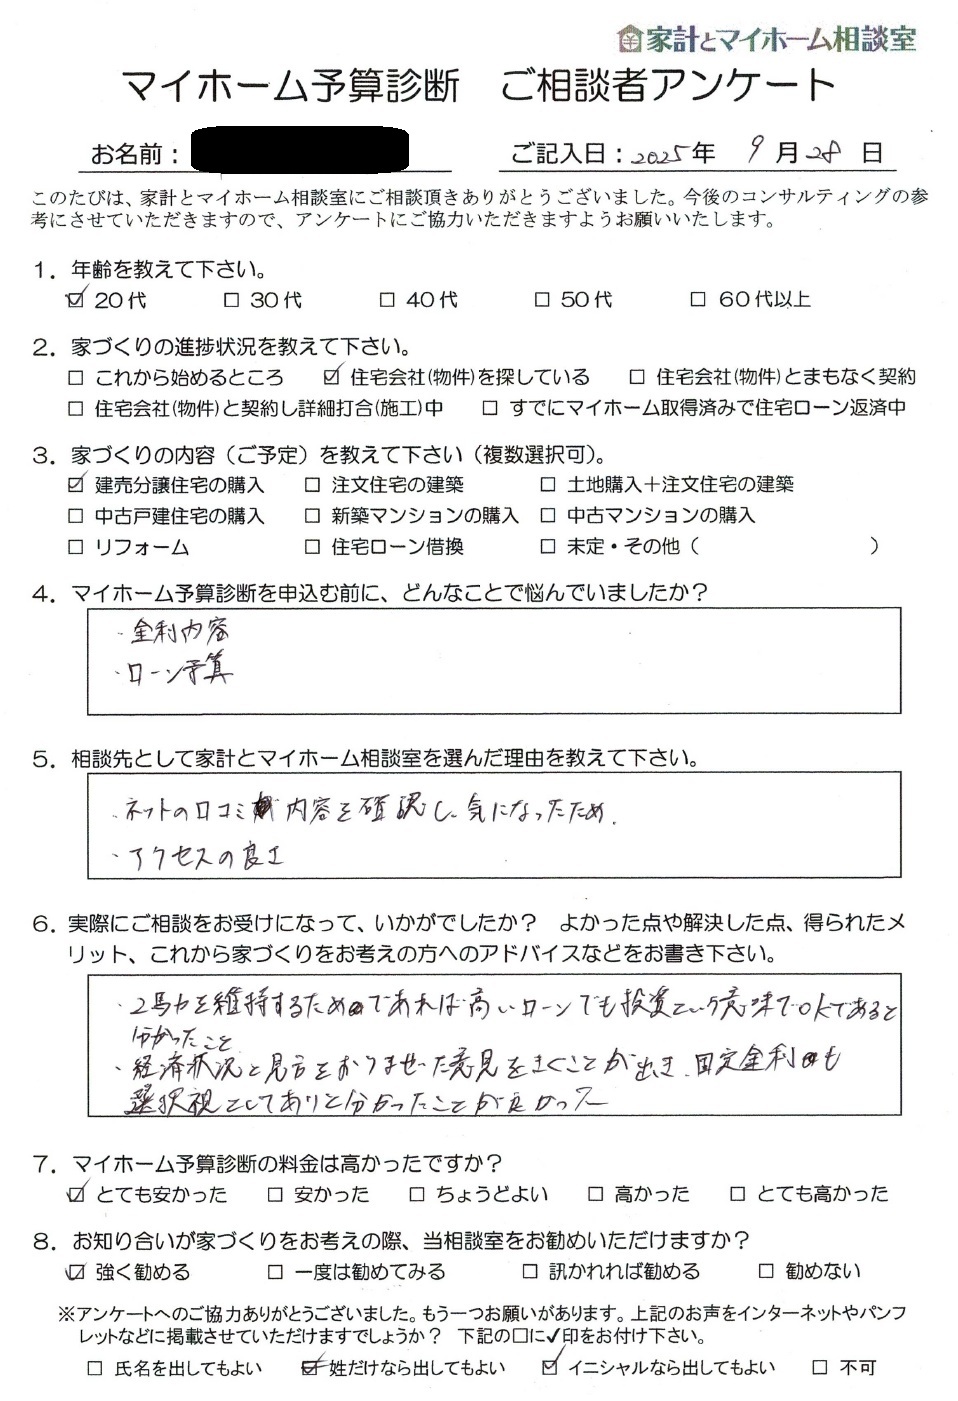 家計とマイホーム相談室
マイホーム予算診断　ご相談者アンケート
お名前：
ご記入日：2025年　9月28日
このたびは、家計とマイホーム相談室にご相談頂きありがとうございました。今後のコンサルティングの参
考にさせていただきますので、アンケートにご協力いただきますようお願いいたします。
1．年齢を教えて下さい。
☑ 20代　□ 30代　□ 40代　□ 50代　□ 60代以上
2．家づくりの進捗状況を教えて下さい。
□ これから始めるところ　☑ 住宅会社(物件)を探している　□ 住宅会社(物件)とまもなく契約
□ 住宅会社(物件)と契約し詳細打合(施工)中　□ すでにマイホーム取得済みで住宅ローン返済中
3．家づくりの内容（ご予定）を教えて下さい（複数選択可）。
☑ 建売分譲住宅の購入　□ 注文住宅の建築　□ 土地購入＋注文住宅の建築
□ 中古戸建住宅の購入　□ 新築マンションの購入　□ 中古マンションの購入
□ リフォーム　□ 住宅ローン借換　□ 未定・その他（　　　　　　）
4．マイホーム予算診断を申込む前に、どんなことで悩んでいましたか？
・金利内容
・ローン予算
5．相談先として家計とマイホーム相談室を選んだ理由を教えて下さい。
・ネットの口コミ内容を確認し、気になったため．
・アクセスの良さ
6．実際にご相談をお受けになって、いかがでしたか？　よかった点や解決した点、得られたメ
リット、これから家づくりをお考えの方へのアドバイスなどをお書き下さい。
・2馬力を維持するためであれば高いローンでも投資という意味でOKであると
分かったこと
・経済状況と見方をおりませた意見をきくことが出き、固定金利も
選択視としてありと分かったことが良かった
7．マイホーム予算診断の料金は高かったですか？
☑ とても安かった　□ 安かった　□ ちょうどよい　□ 高かった　□ とても高かった
8．お知り合いが家づくりをお考えの際、当相談室をお勧めいただけますか？
☑ 強く勧める　□ 一度は勧めてみる　□ 訊かれれば勧める　□ 勧めない
※アンケートへのご協力ありがとうございました。もう一つお願いがあります。上記のお声をインターネットやパンフ
レットなどに掲載させていただけますでしょうか？　下記の□に✓印をお付け下さい。
□ 氏名を出してもよい　☑ 姓だけなら出してもよい　☑ イニシャルなら出してもよい　□ 不可